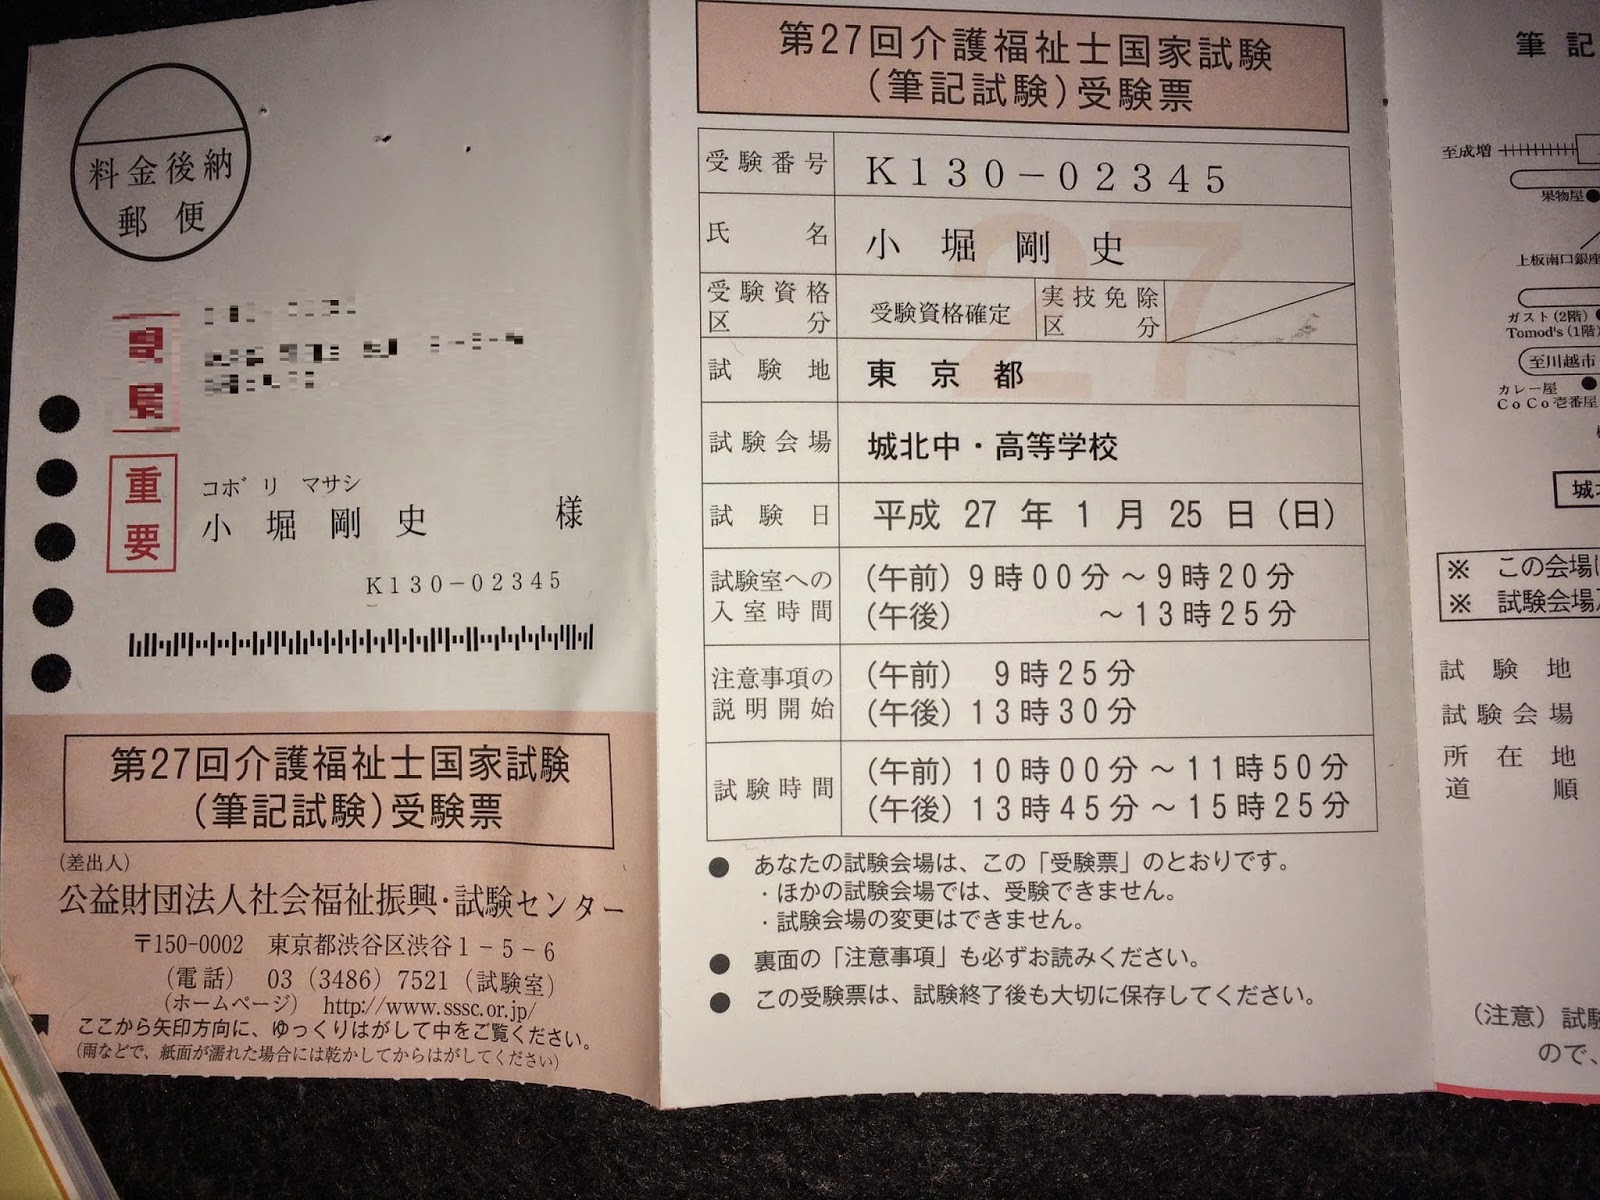 料金後納
郵便
重要
コボリ マサシ
小堀剛史 様
K130-02345
第27回介護福祉士国家試験
(筆記試験)受験票
(差出人)
公益財団法人社会福祉振興・試験センター
〒150-0002 東京都渋谷区渋谷1-5-6
(電話) 03(3486)7521(試験室)
(ホームページ) http://www.sssc.or.jp/
ここから矢印方向に、ゆっくりはがして中をご覧ください。
(雨などで、紙面が濡れた場合には乾かしてからはがしてください)
第27回介護福祉士国家試験
(筆記試験)受験票
27
受験番号 K130-02345
氏名 小堀剛史
受験資格区分 受験資格確定 実技免除区分
試験地 東京都
試験会場 城北中・高等学校
試験日 平成 27 年 1 月 25 日(日)
試験室への入室時間 (午前)9時00分~9時20分
(午後) ~13時25分
注意事項の説明開始 (午前) 9時25分
(午後)13時30分
試験時間 (午前)10時00分~11時50分
(午後)13時45分~15時25分
● あなたの試験会場は、この「受験票」のとおりです。
・ほかの試験会場では、受験できません。
・試験会場の変更はできません。
● 裏面の「注意事項」も必ずお読みください。
● この受験票は、試験終了後も大切に保存してください。
筆記
至成増
果物屋●
上板南口銀座
ガスト(2階)
Tomod's(1階)
至川越市
カレー屋 ●
CoCo壱番屋
城
※ この会場
※ 試験会場
試験地
試験会場
所在地
道順
(注意)試
ので、